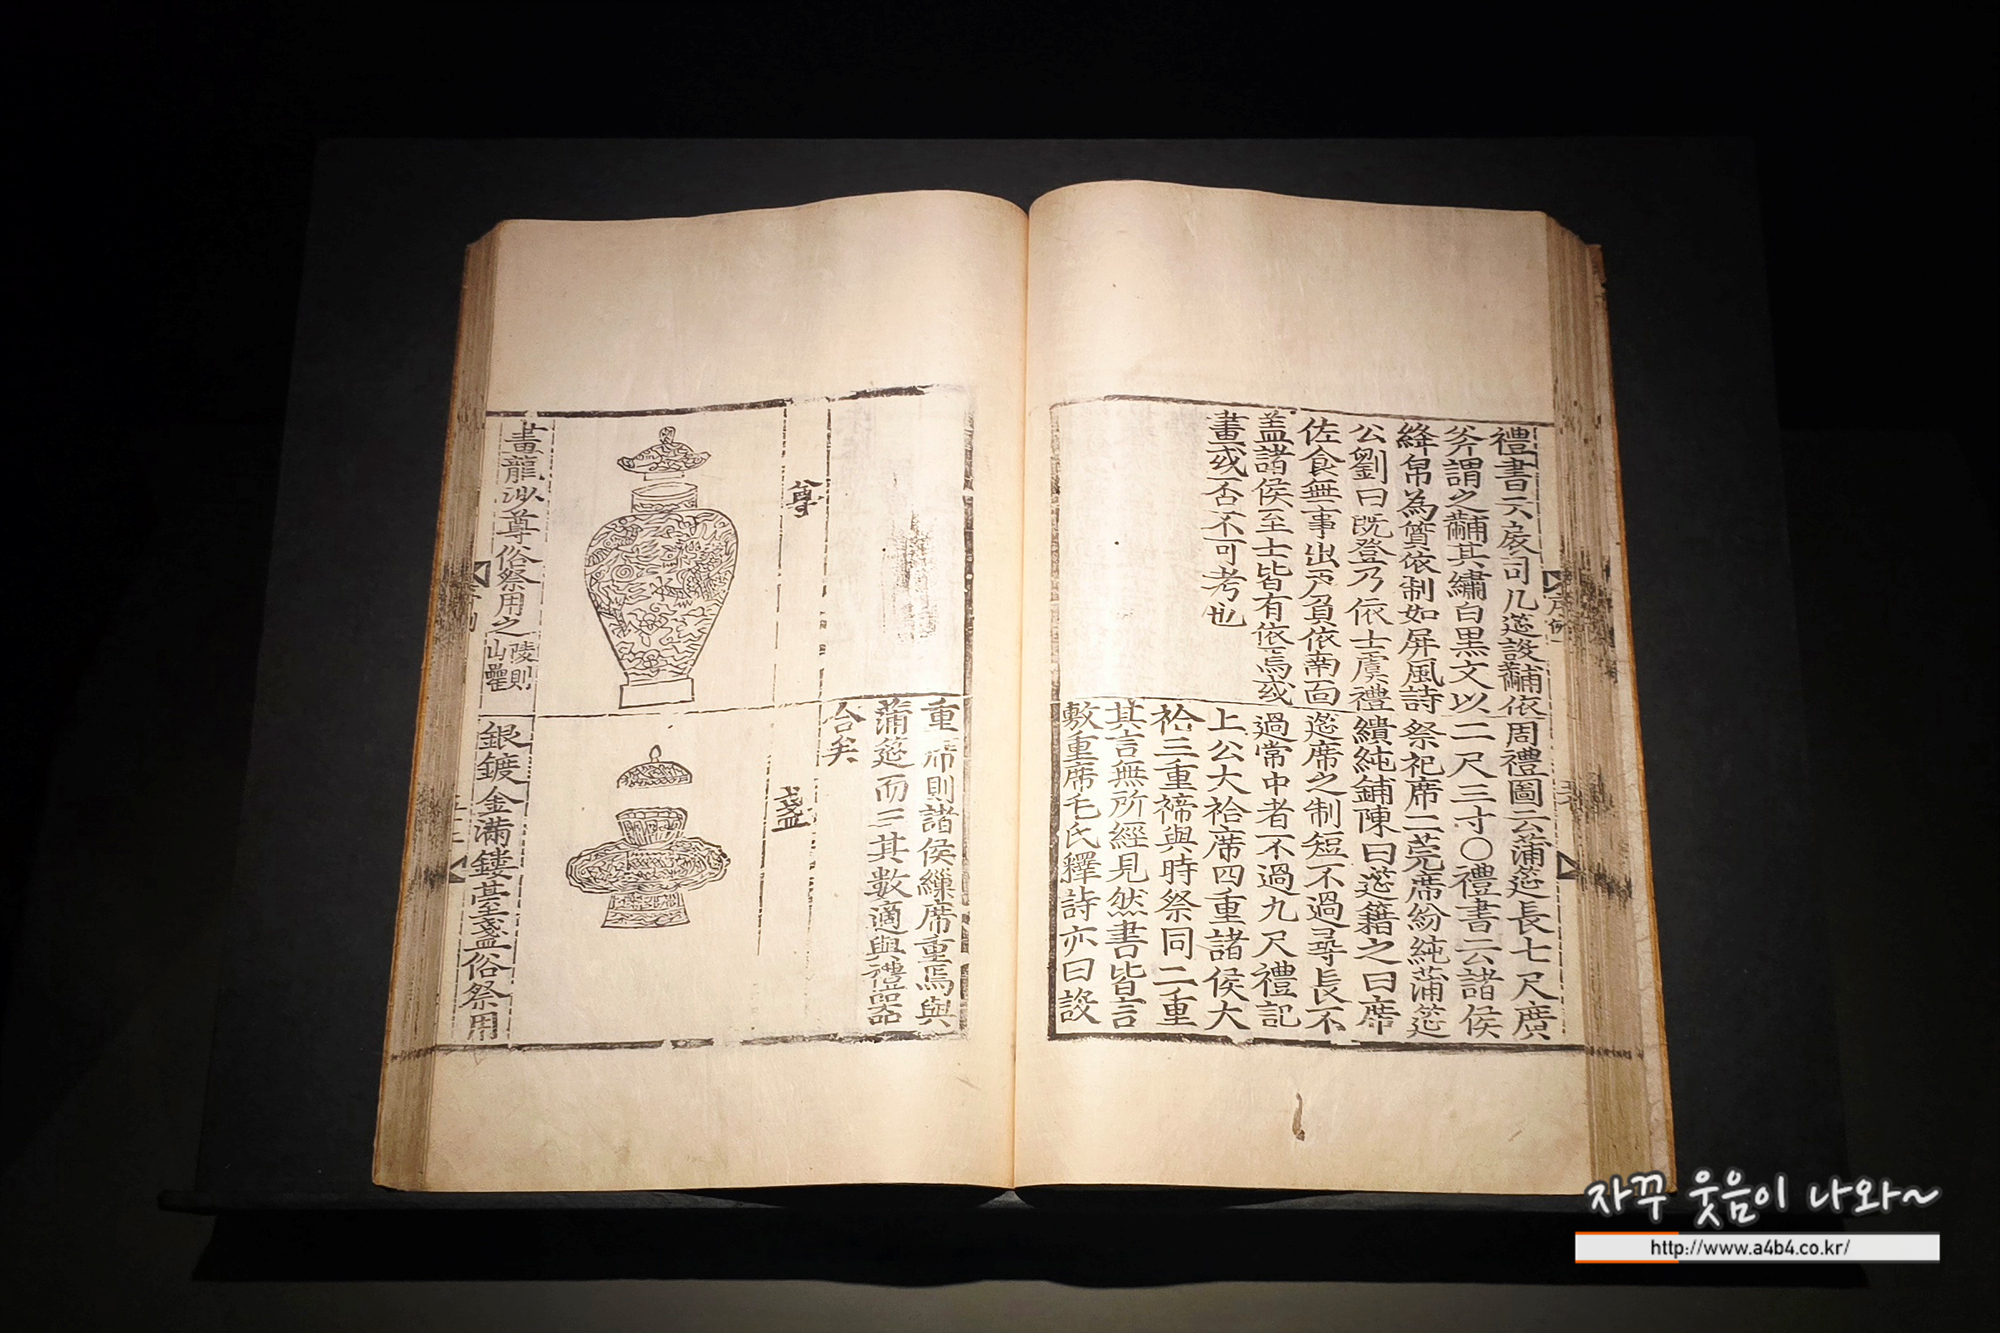 禮書云扆司几筵設黼依
斧謂之黼其繡白黒文以
絳帛為質依制如屏風詩
公劉曰旣登乃依士虞禮
佐食無事出戸負依南面
盖諸侯至士皆有依焉或
畫或否不可考也
周禮圖云蒲筵長七尺廣
二尺三寸○禮書云諸侯
祭祀席二莞席紛純蒲筵
繢純鋪陳曰筵籍之曰席
筵席之制短不過尋長不
過常中者不過九尺禮記
上公大祫席四重諸侯大
祫三重禘與時祭同二重
其言無所經見然書皆言
敷重席毛氏釋詩亦曰設
尊
畫龍沙尊俗祭用之
陵則
山罍
重席則諸侯繅席重焉與
蒲筵而三其數適與禮器
合矣
盞
銀鍍金滿鏤臺盞俗祭用
자꾸 웃음이 나와~
http://www.a4b4.co.kr/